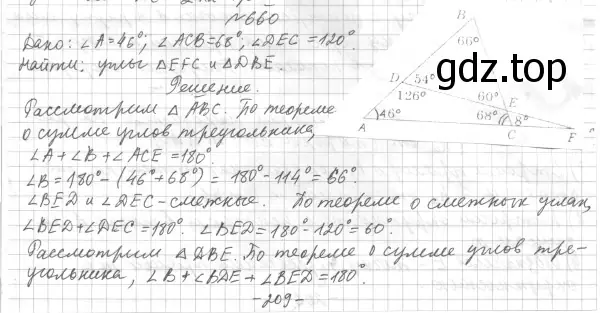 №660
Дано: ∠A=46°; ∠ACB=68°; ∠DEC=120°.
Найти: углы △EFC и △DBE.
Решение.
Рассмотрим △ABC. По теореме
о сумме углов треугольника,
∠A+∠B+∠ACE=180°
∠B=180°-(46°+68°)=180°-114°=66°
∠BED и ∠DEC-смежные. По теореме о смежных углах,
∠BED+∠DEC=180°. ∠BED=180°-120°=60°.
Рассмотрим △DBE. По теореме о сумме углов тре-
угольника, ∠B+∠BDE+∠BED=180°.
-209-
gdz.top
B
66°
D
54°
126°
60°
E
A
46°
68°
8°
C
F